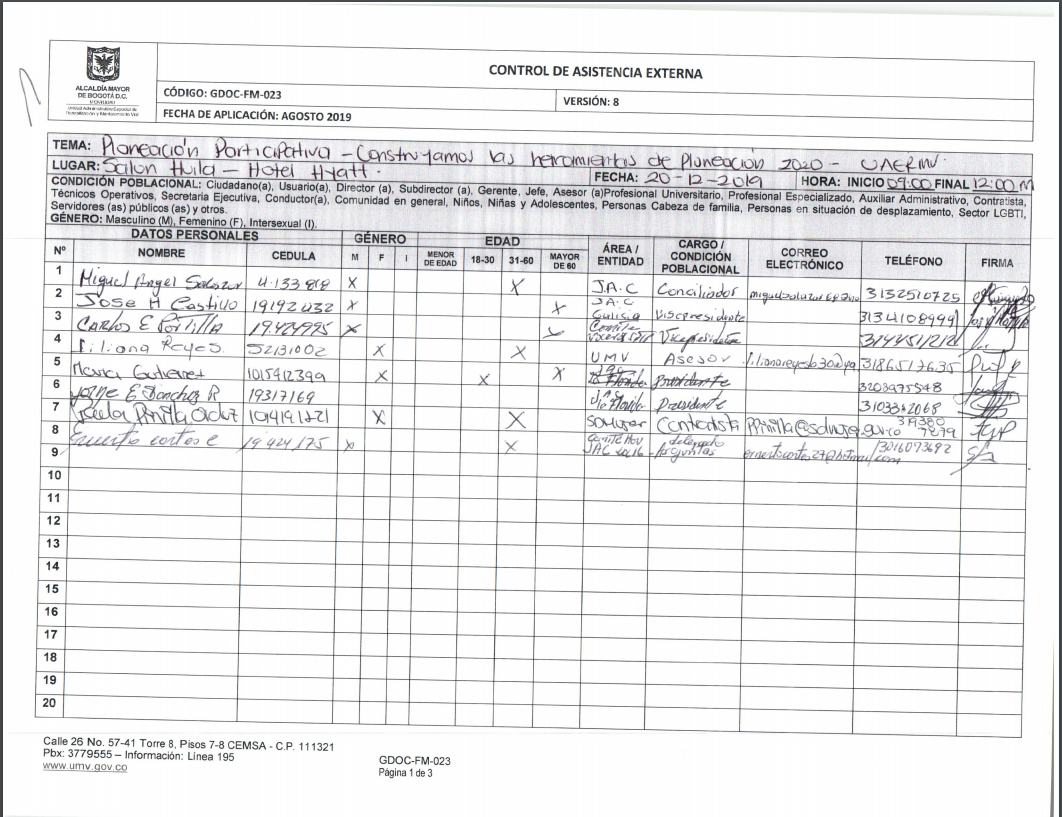 ALCALDÍA MAYOR
DE BOGOTÁ D.C.
MOVILIDAD
Unidad Administrativa Especial de
Rehabilitación y Mantenimiento Vial
CONTROL DE ASISTENCIA EXTERNA
CÓDIGO: GDOC-FM-023
VERSIÓN: 8
FECHA DE APLICACIÓN: AGOSTO 2019
TEMA: Planeación Participativa - Construyamos las herramientas de Planeación 2020 - UAERMV.
LUGAR: Salon Huila - Hotel Hyatt. FECHA: 20-12-2019 HORA: INICIO 09:00 FINAL 12:00 M
CONDICIÓN POBLACIONAL: Ciudadano(a), Usuario(a), Director (a), Subdirector (a), Gerente, Jefe, Asesor (a)Profesional Universitario, Profesional Especializado, Auxiliar Administrativo, Contratista,
Técnicos Operativos, Secretaria Ejecutiva, Conductor(a), Comunidad en general, Niños, Niñas y Adolescentes, Personas Cabeza de familia, Personas en situación de desplazamiento, Sector LGBTI,
Servidores (as) públicos (as) y otros.
GÉNERO: Masculino (M), Femenino (F), Intersexual (I).
DATOS PERSONALES GÉNERO EDAD
Nº NOMBRE CEDULA M F I MENOR DE EDAD 18-30 31-60 MAYOR DE 60 ÁREA / ENTIDAD CARGO / CONDICIÓN POBLACIONAL CORREO ELECTRÓNICO TELÉFONO FIRMA
1 Miguel Angel Salazar 4.133.818 X X J.A.C Conciliador 3132510725
2 Jose H Castillo 19192432 X X J.A.C Galicia Vicepresidente 3134108999
3 Carlos E Portilla 19.424925 X Comite Vicepresidente
4 Liliana Reyes. 52131002 X X UMV Asesor 3186512635
5 Maria Gutierrez 1015412399 X X X Presidente 3203975548
6 Jorge E Sanchez R 19317169 Presidente 3103342068
7 Paula Pinilla X X SDMujer Contratista
8 Ernesto Cortes C 19424175 X X delegado 3016093692
9
10
11
12
13
14
15
16
17
18
19
20
Calle 26 No. 57-41 Torre 8, Pisos 7-8 CEMSA - C.P. 111321
Pbx: 3779555 – Información: Línea 195
www.umv.gov.co
GDOC-FM-023
Página 1 de 3